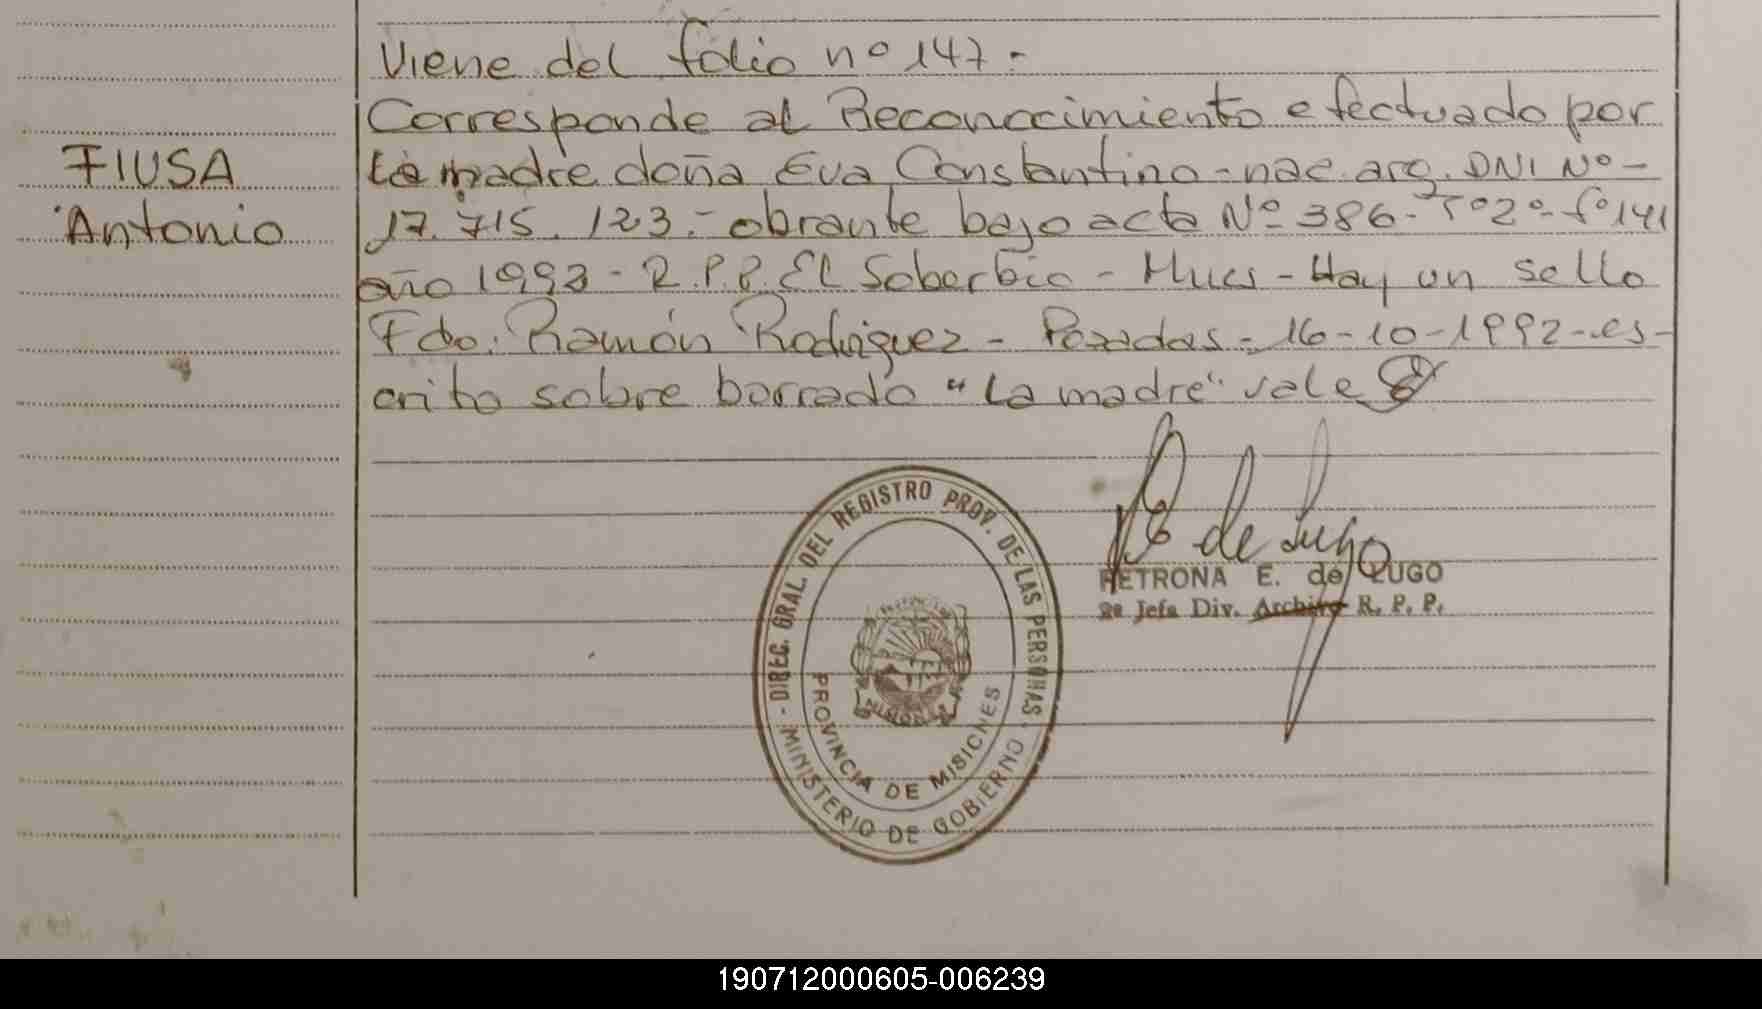 Viene del folio nº 147.-
Corresponde al Reconocimiento efectuado por
FIUSA
la madre doña Eva Constantino - nac. arg. DNI Nº -
Antonio
17.715.123.- obrante bajo acta Nº 386- Tº2º- fº141
año 1992 - R.P.P. El Soberbio - Mnes - Hay un sello
Fdo. Ramón Rodriguez - Posadas - 16-10-1992 - es-
crito sobre borrado "la madre" vale
DIREC. GRAL. DEL REGISTRO PROV. DE LAS PERSONAS
MINISTERIO DE GOBIERNO
PROVINCIA DE MISIONES
de Lugo
PETRONA E. de LUGO
2ª Jefa Div. Archivo R. P. P.
190712000605-006239